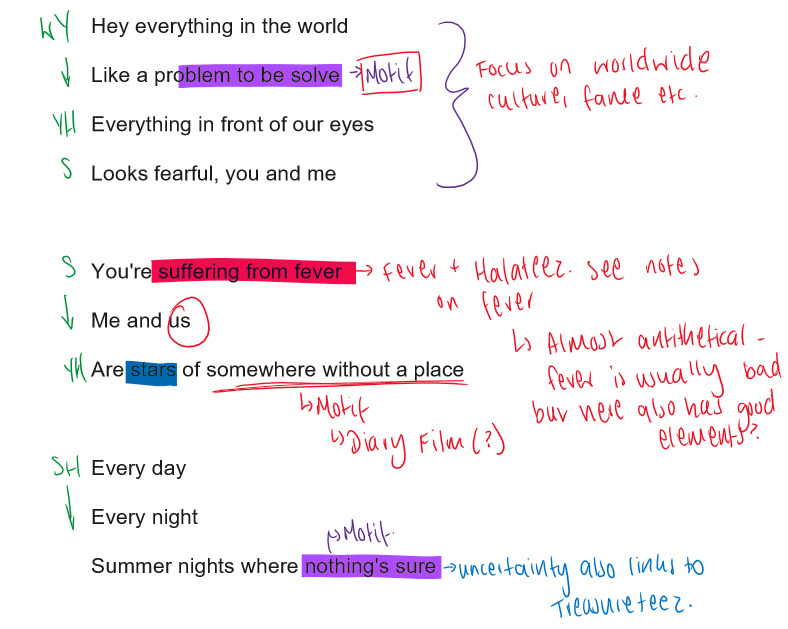 WY Hey everything in the world
Like a problem to be solve → Motif
YH Everything in front of our eyes
S Looks fearful, you and me
Focus on worldwide
culture, fame etc.
S You're suffering from fever → Fever + Halateez. see notes
on fever
Me and us
YH Are stars of somewhere without a place
↳ Almost antithetical -
fever is usually bad
but here also has good
elements?
↳ Motif
↳ Diary Film (?)
SH Every day
Every night
↱ Motif.
Summer nights where nothing's sure → uncertainty also links to
Treasureteez.